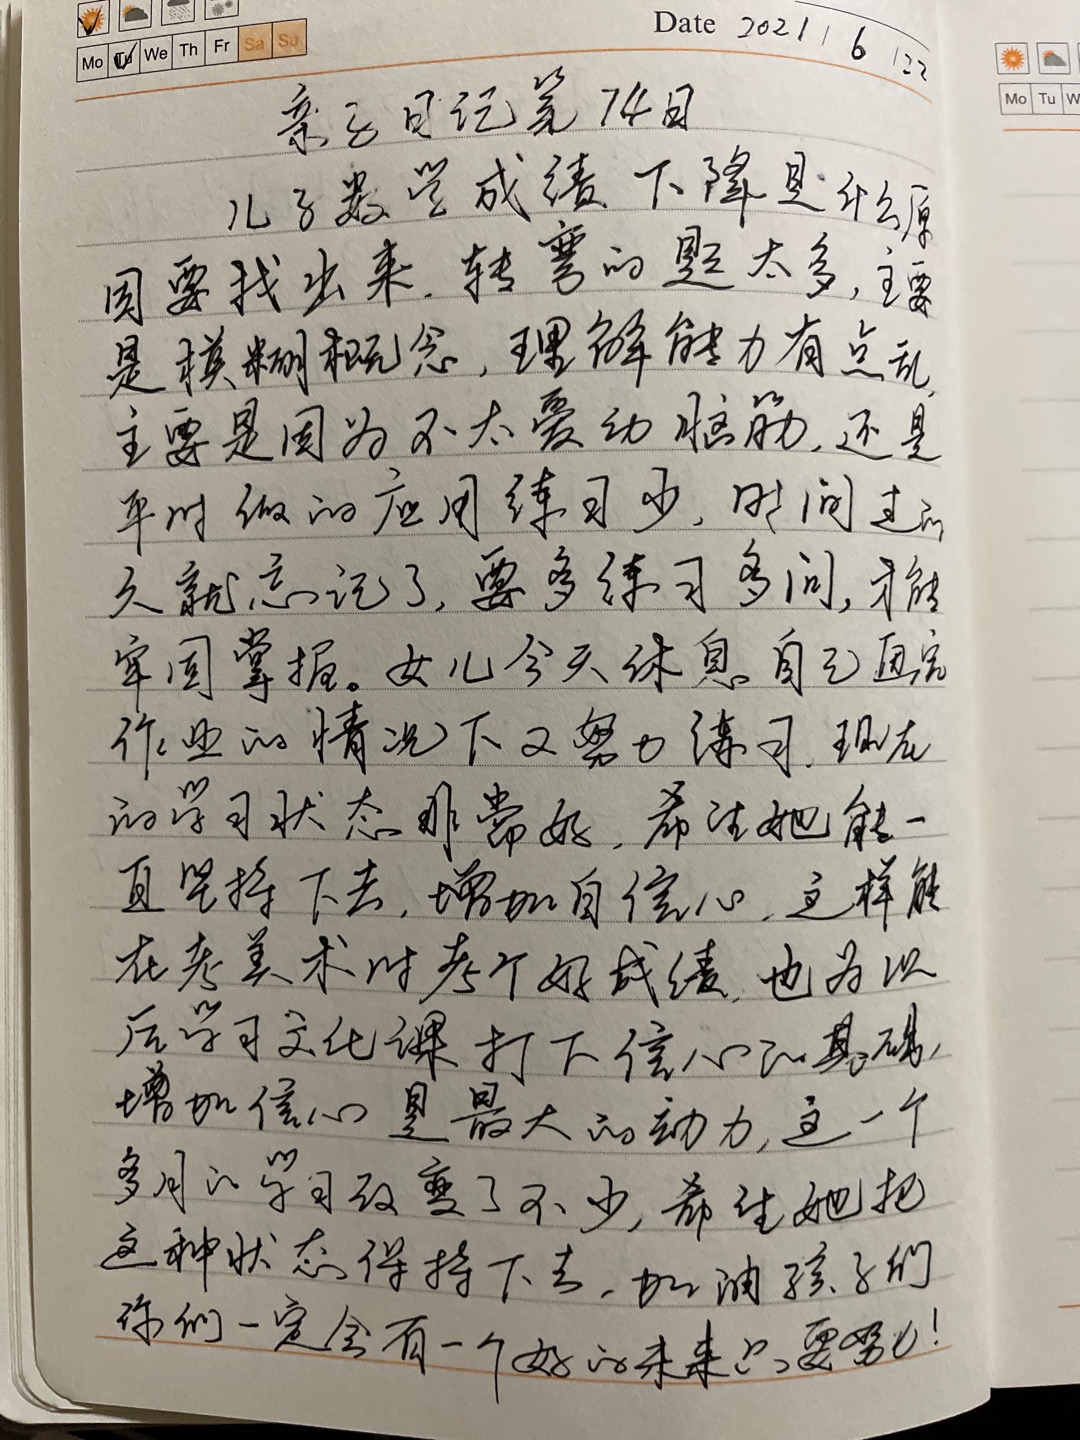 Date 2021/6/22
Mo Tu We Th Fr Sa Su
Mo Tu W
亲子日记第74日
儿子数学成绩下降是什么原
因要找出来.转弯的题太多,主要
是模糊概念,理解能力有点乱,
主要是因为不太爱动脑筋,还是
平时做的应用练习少,时间过的
久就忘记了,要多练习多问,才能
牢固掌握。女儿今天休息自己画完
作业的情况下又努力练习.现在
的学习状态非常好,希望她能一
直坚持下去,增加自信心,这样能
在考美术时考个好成绩,也为以
后学习文化课打下信心的基础,
增加信心是最大的动力,这一个
多月的学习改变了不少,希望她把
这种状态保持下去,加油孩子们
你们一定会有一个好的未来只要努力!